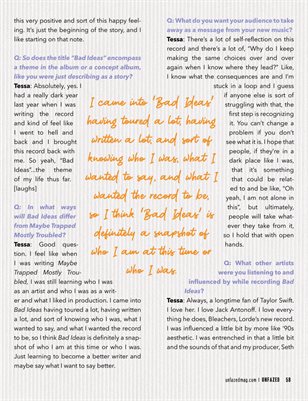 this very positive and sort of this happy feel-
ing. It's just the beginning of the story, and I
like starting on that note.
Q: So does the title "Bad Ideas" encompass
a theme in the album or a concept album,
like you were just describing as a story?
Tessa: Absolutely, yes. I
had a really dark year
last year when I was
writing the record
and kind of feel like
I went to hell and
back and I brought
this record back with
me. So yeah, "Bad
Ideas"...the theme
of my life thus far.
[laughs]
Q: In what ways
will Bad Ideas differ
from Maybe Trapped
Mostly Troubled?
Tessa: Good ques-
tion. I feel like when
I was writing Maybe
Trapped Mostly Trou-
bled, I was still learning who I was
as an artist and who I was as a writ-
er and what I liked in production. I came into
Bad Ideas having toured a lot, having written
a lot, and sort of knowing who I was, what I
wanted to say, and what I wanted the record
to be, so I think Bad Ideas is definitely a snap-
shot of who I am at this time or who I was.
Just learning to become a better writer and
maybe say what I want to say better.
I came into 'Bad Ideas'
having toured a lot, having
written a lot, and sort of
knowing who I was, what I
wanted to say, and what I
wanted the record to be,
so I think 'Bad Ideas' is
definitely a snapshot of
who I am at this time or
who I was.
Q: What do you want your audience to take
away as a message from your new music?
Tessa: There's a lot of self-reflection on this
record and there's a lot of, "Why do I keep
making the same choices over and over
again when I know where they lead?" Like,
I know what the consequences are and I'm
stuck in a loop and I guess
if anyone else is sort of
struggling with that, the
first step is recognizing
it. You can't change a
problem if you don't
see what it is. I hope that
people, if they're in a
dark place like I was,
that it's something
that could be relat-
ed to and be like, "Oh
yeah, I am not alone in
this", but ultimately,
people will take what-
ever they take from it,
so I hold that with open
hands.
Q: What other artists
were you listening to and
influenced by while recording Bad
Ideas?
Tessa: Always, a longtime fan of Taylor Swift.
I love her. I love Jack Antonoff. I love every-
thing he does, Bleachers, Lorde's new record.
I was influenced a little bit by more like '90s
aesthetic. I was entrenched in that a little bit
and the sounds of that and my producer, Seth
unfazedmag.com | UNFAZED 58